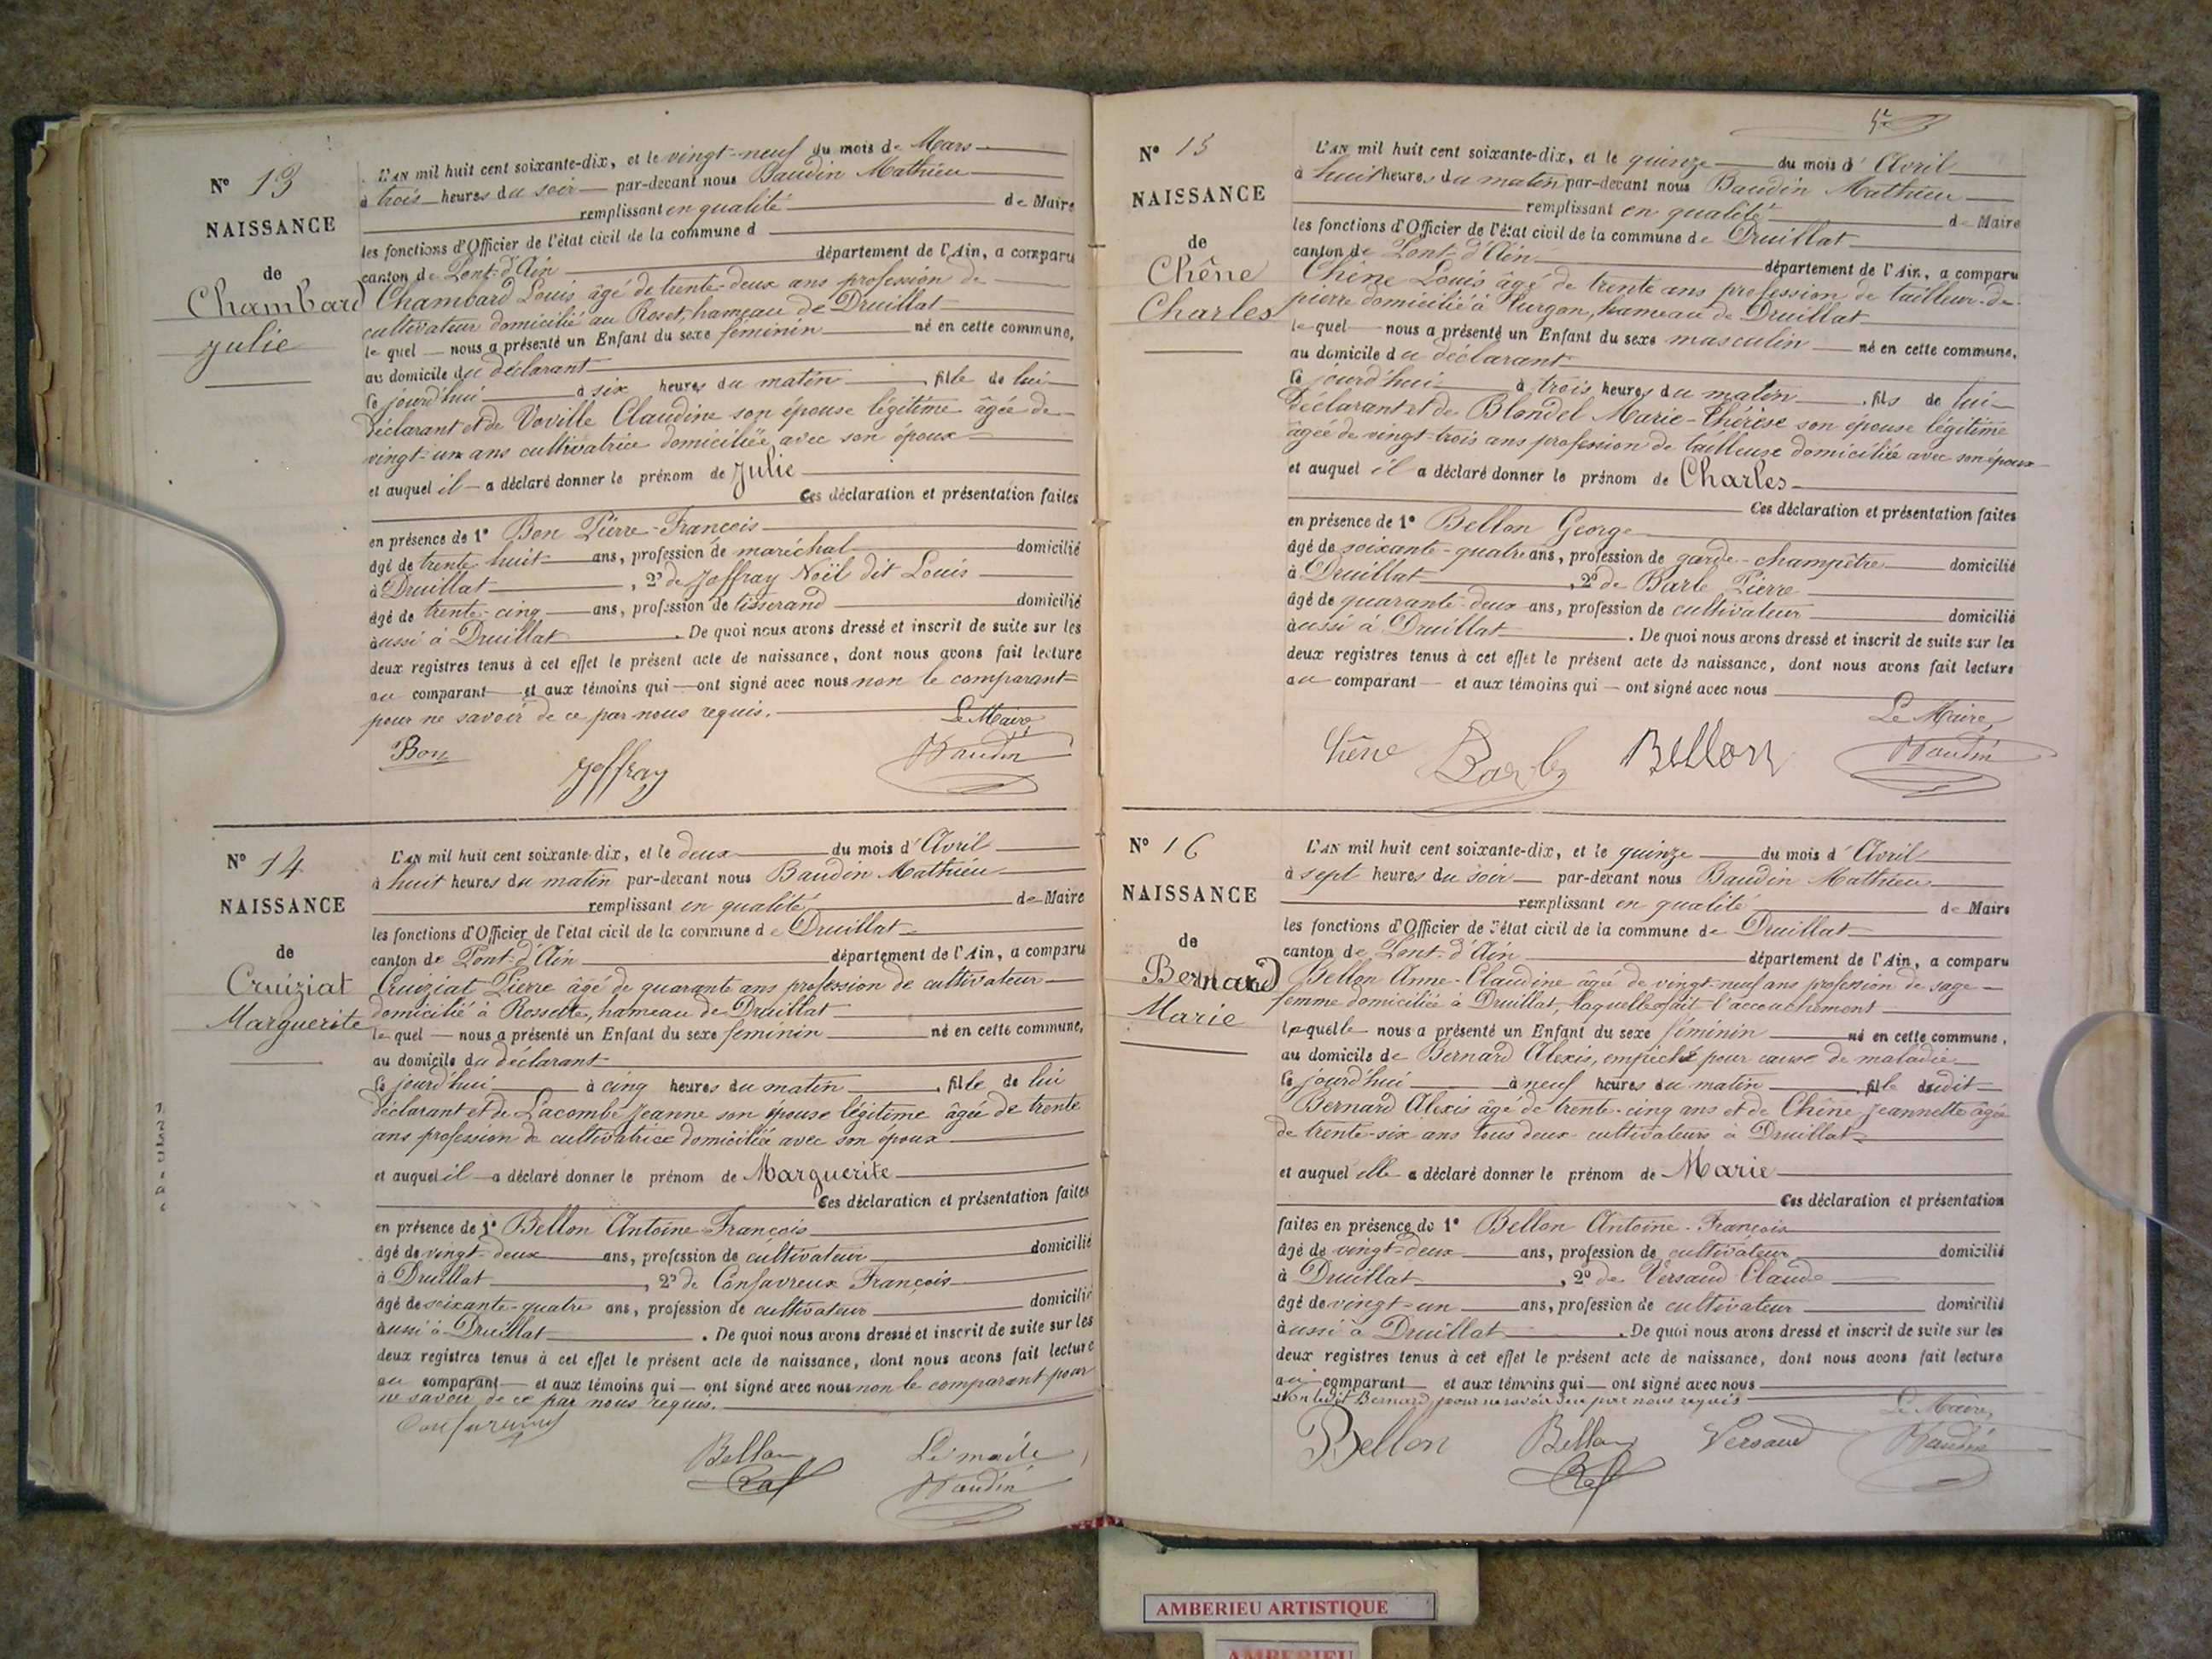 N° 13
NAISSANCE
de
Chambard
Julie
L'AN mil huit cent soixante-dix, et le vingt-neuf du mois de Mars
à trois heures du soir par-devant nous Baudin Mathieu
remplissant en qualité de Maire
les fonctions d'Officier de l'état civil de la commune d
canton de Pont-d'Ain département de l'Ain, a comparu
Chambard Louis âgé de trente-deux ans profession de
cultivateur domicilié au Roset, hameau de Druillat
le quel nous a présenté un Enfant du sexe féminin né en cette commune,
au domicile du déclarant
ce jourd'hui à six heures du matin, fille de lui
déclarant et de Voville Claudine son épouse légitime âgée de
vingt-un ans cultivatrice domiciliée avec son époux
et auquel il a déclaré donner le prénom de Julie
Ces déclaration et présentation faites
en présence de 1° Bon Pierre-François
âgé de trente huit ans, profession de maréchal domicilié
à Druillat, 2° de Joffray Noël dit Louis
âgé de trente-cinq ans, profession de tisserand domicilié
aussi à Druillat. De quoi nous avons dressé et inscrit de suite sur les
deux registres tenus à cet effet le présent acte de naissance, dont nous avons fait lecture
au comparant et aux témoins qui ont signé avec nous non le comparant
pour ne savoir de ce par nous requis.
Le Maire,
Bon Joffray Baudin
N° 14
NAISSANCE
de
Cruiziat
Marguerite
L'AN mil huit cent soixante-dix, et le deux du mois d'Avril
à huit heures du matin par-devant nous Baudin Mathieu
remplissant en qualité de Maire
les fonctions d'Officier de l'état civil de la commune de Druillat
canton de Pont-d'Ain département de l'Ain, a comparu
Cruiziat Pierre âgé de quarante ans profession de cultivateur
domicilié à Rossette, hameau de Druillat
le quel nous a présenté un Enfant du sexe féminin né en cette commune,
au domicile du déclarant
ce jourd'hui à cinq heures du matin, fille de lui
déclarant et de Lacombe Jeanne son épouse légitime âgée de trente
ans profession de cultivatrice domiciliée avec son époux
et auquel il a déclaré donner le prénom de Marguerite
Ces déclaration et présentation faites
en présence de 1° Bellon Antoine-François
âgé de vingt-deux ans, profession de cultivateur domicilié
à Druillat, 2° de Confavreux François
âgé de soixante-quatre ans, profession de cultivateur domicilié
aussi à Druillat. De quoi nous avons dressé et inscrit de suite sur les
deux registres tenus à cet effet le présent acte de naissance, dont nous avons fait lecture
au comparant et aux témoins qui ont signé avec nous non le comparant pour
ne savoir de ce par nous requis.
Confavreux
Bellon Le maire
Baudin
N° 15
NAISSANCE
de
Chêne
Charles
L'AN mil huit cent soixante-dix, et le quinze du mois d'Avril
à huit heures du matin par-devant nous Baudin Mathieu
remplissant en qualité de Maire
les fonctions d'Officier de l'état civil de la commune de Druillat
canton de Pont-d'Ain département de l'Ain, a comparu
Chêne Louis âgé de trente ans profession de tailleur-de-
pierre domicilié à Turgon, hameau de Druillat
le quel nous a présenté un Enfant du sexe masculin né en cette commune,
au domicile du déclarant
ce jourd'hui à trois heures du matin, fils de lui
déclarant et de Blondel Marie-Thérèse son épouse légitime
âgée de vingt-trois ans profession de tailleuse domiciliée avec son époux
et auquel il a déclaré donner le prénom de Charles
Ces déclaration et présentation faites
en présence de 1° Bellon George
âgé de soixante-quatre ans, profession de garde-champêtre domicilié
à Druillat, 2° de Barbe Pierre
âgé de quarante-deux ans, profession de cultivateur domicilié
aussi à Druillat. De quoi nous avons dressé et inscrit de suite sur les
deux registres tenus à cet effet le présent acte de naissance, dont nous avons fait lecture
au comparant et aux témoins qui ont signé avec nous
Le Maire,
Chêne Barbe Bellon Baudin
N° 16
NAISSANCE
de
Bernard
Marie
L'AN mil huit cent soixante-dix, et le quinze du mois d'Avril
à sept heures du soir par-devant nous Baudin Mathieu
remplissant en qualité de Maire
les fonctions d'Officier de l'état civil de la commune de Druillat
canton de Pont-d'Ain département de l'Ain, a comparu
Bellon Anne-Claudine âgée de vingt-neuf ans profession de sage-
femme domiciliée à Druillat, laquelle a fait l'accouchement
laquelle nous a présenté un Enfant du sexe féminin né en cette commune,
au domicile de Bernard Alexis, empêché pour cause de maladie
ce jourd'hui à neuf heures du matin, fille dudit
Bernard Alexis âgé de trente-cinq ans et de Chêne Jeannette âgée
de trente-six ans tous deux cultivateurs à Druillat
et auquel elle a déclaré donner le prénom de Marie
Ces déclaration et présentation
faites en présence de 1° Bellon Antoine-François
âgé de vingt-deux ans, profession de cultivateur domicilié
à Druillat, 2° de Versaud Claude
âgé de vingt-un ans, profession de cultivateur domicilié
aussi à Druillat. De quoi nous avons dressé et inscrit de suite sur les
deux registres tenus à cet effet le présent acte de naissance, dont nous avons fait lecture
au comparant et aux témoins qui ont signé avec nous
non ledit Bernard pour ne savoir de ce par nous requis
Le Maire,
Bellon Bellon Versaud Baudin
AMBERIEU ARTISTIQUE
AMBERIEU